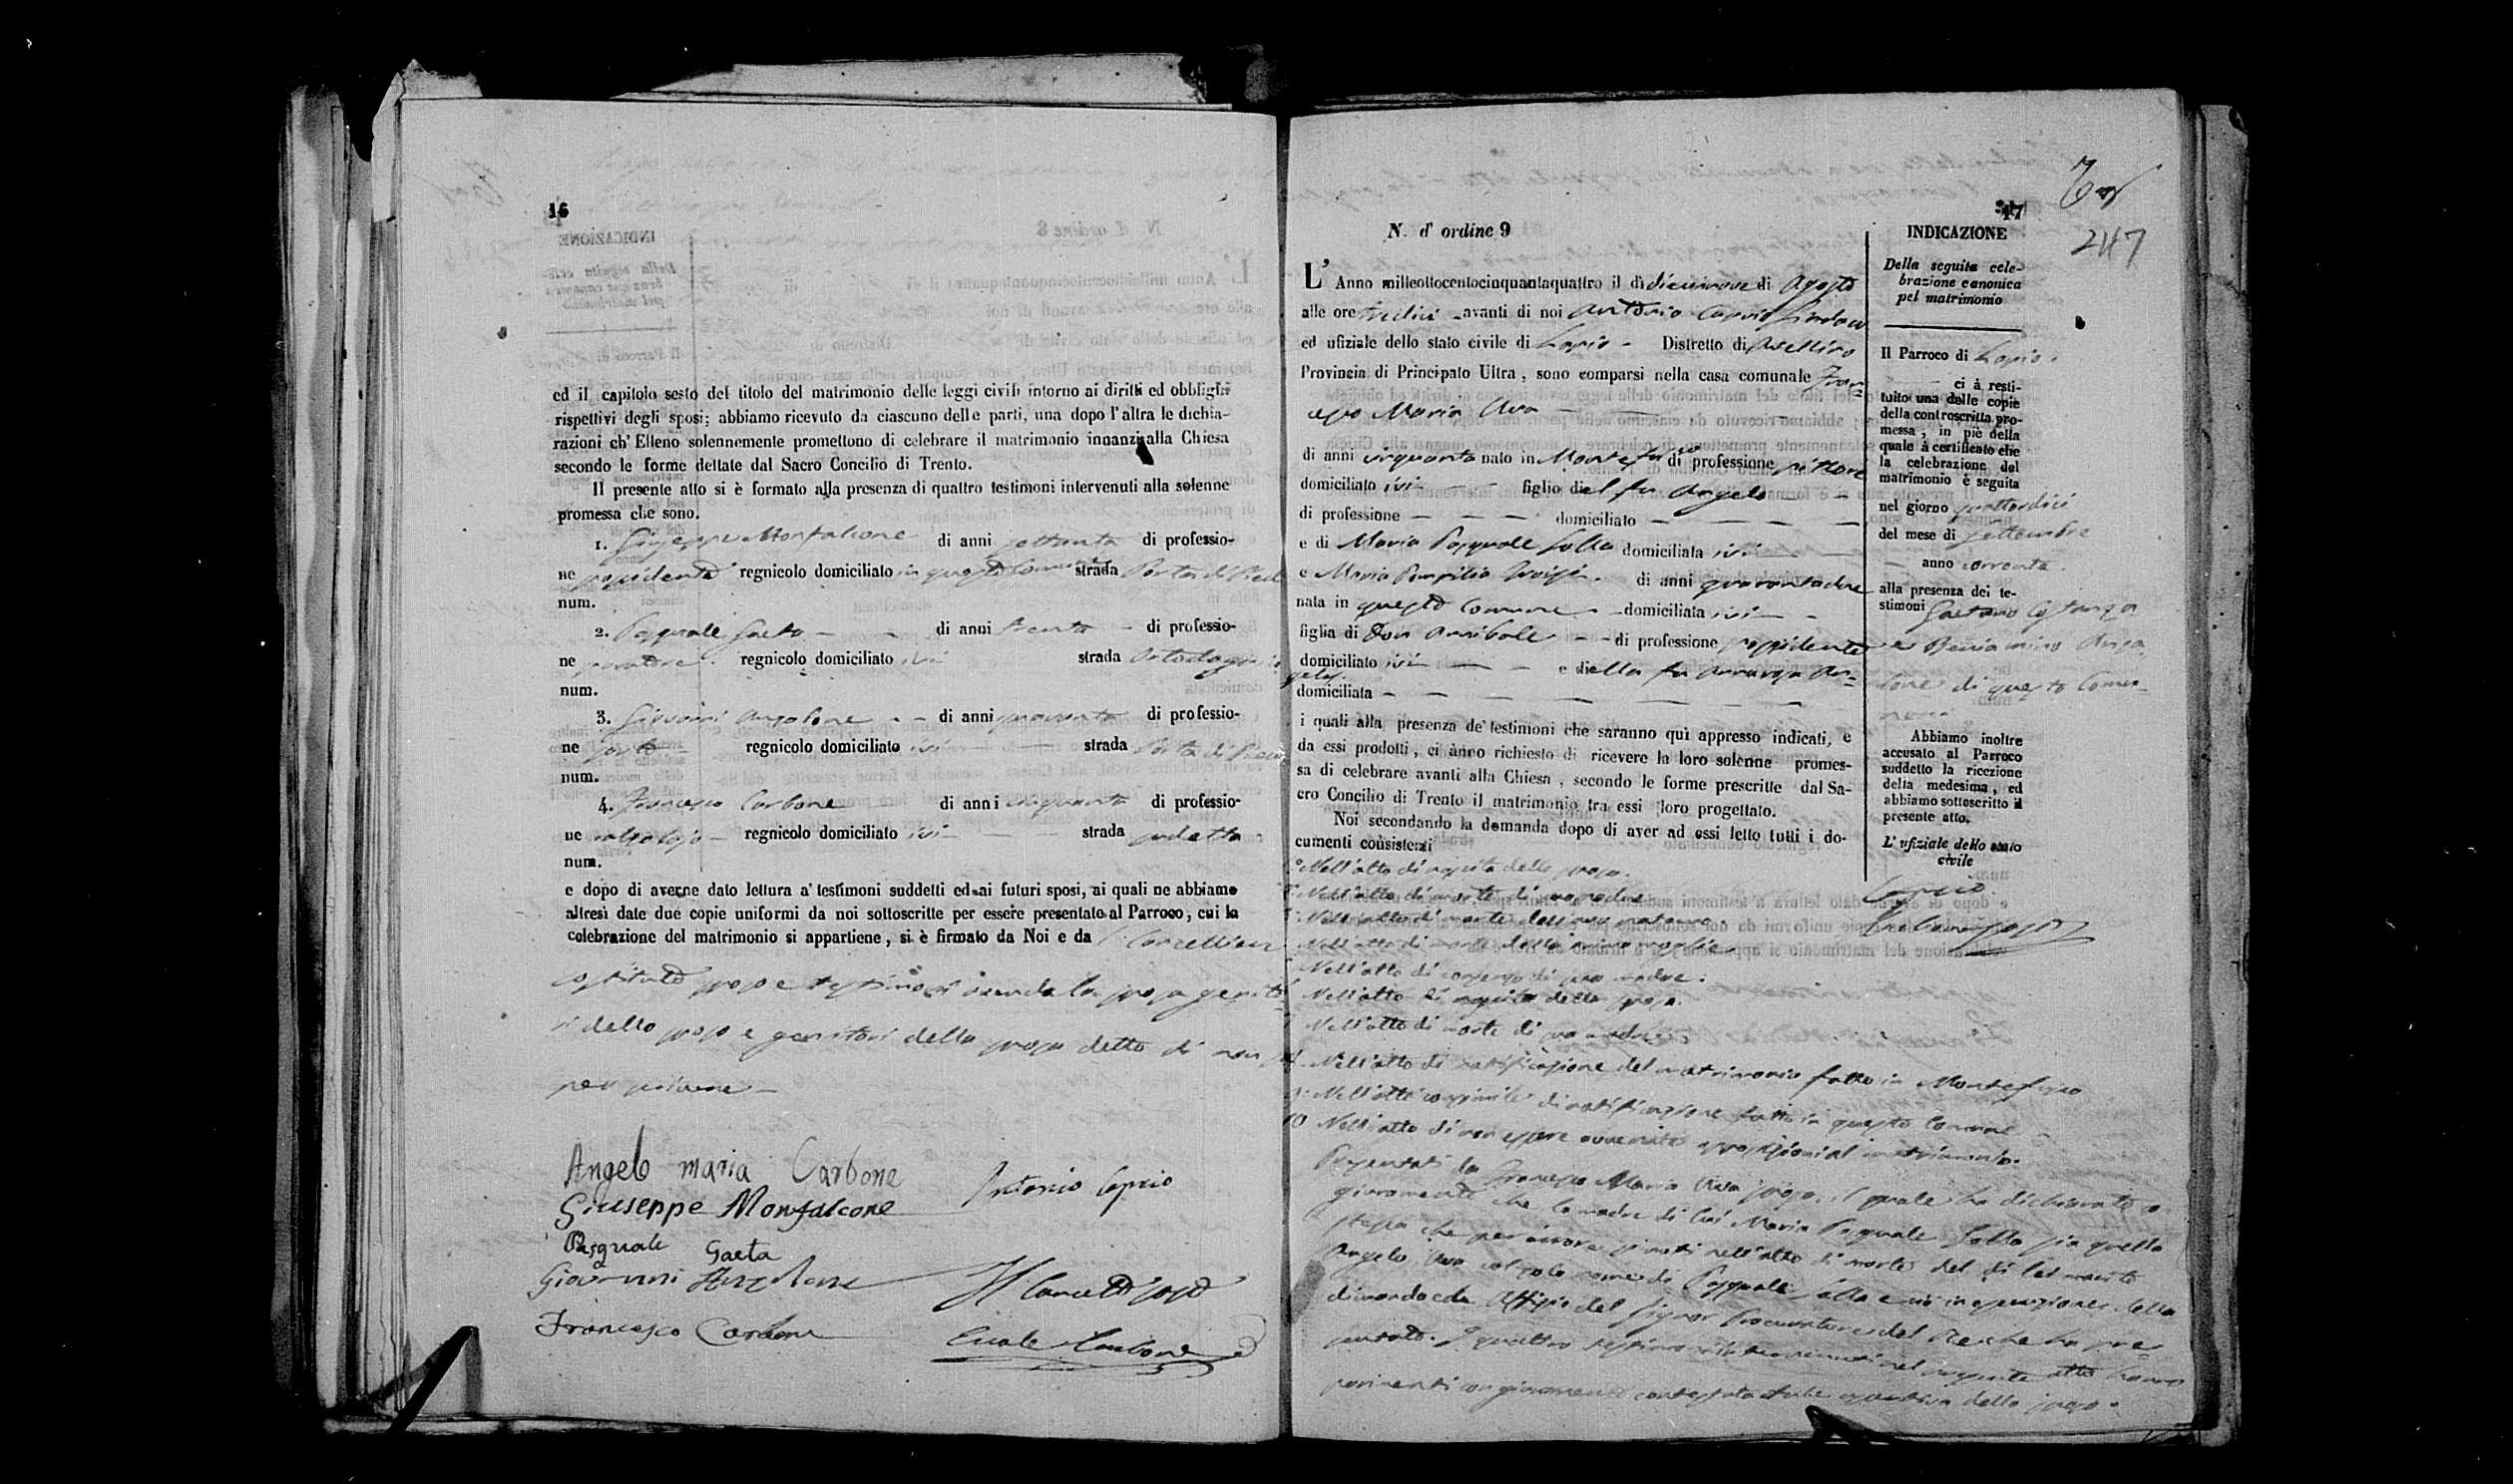 16
ed il capitolo sesto del titolo del matrimonio delle leggi civili intorno ai diritti ed obblighi
rispettivi degli sposi; abbiamo ricevuto da ciascuno delle parti, una dopo l'altra le dichia-
razioni ch' Elleno solennemente promettono di celebrare il matrimonio innanzi alla Chiesa
secondo le forme dettate dal Sacro Concilio di Trento.
Il presente atto si è formato alla presenza di quattro testimoni intervenuti alla solenne
promessa che sono.
1. Giuseppe Monfalcone di anni settanta di professio-
ne possidente regnicolo domiciliato in questo comune strada Porta di
num.
2. Pasquale Gaeta di anni trenta di professio-
ne regnicolo domiciliato ivi strada
num.
3. Giovanni Anzalone di anni quaranta di professio-
ne sarto regnicolo domiciliato ivi strada Porta di
num.
4. Francesco Carbone di anni cinquanta di professio-
ne calzolajo regnicolo domiciliato ivi strada sudetta
num.
e dopo di averne dato lettura a' testimoni suddetti ed ai futuri sposi, ai quali ne abbiamo
altresì date due copie uniformi da noi sottoscritte per essere presentate al Parroco, cui la
celebrazione del matrimonio si appartiene, si è firmato da Noi e da l Cancelliere
sostituto sposo e testimoni avendo la sposa genito
ri dello sposo e genitori della sposa detto di non sa
per scrivere
Angelo maria Carbone
Antonio Caprio
Giuseppe Monfalcone
Pasquale Gaeta
Giovanni Anzalone
Il Cancell. sost.
Francesco Carbone
Carbone
17
247
N. d' ordine 9
L' Anno milleottocentocinquantaquattro il dì diciannove di Agosto
alle ore tredici avanti di noi Antonio Caprio Sindaco
ed ufiziale dello stato civile di Lapio Distretto di Avellino
Provincia di Principato Ultra, sono comparsi nella casa comunale Fran-
cesco Maria Uva
di anni cinquanta nato in Montefusco di professione pittore
domiciliato ivi figlio del fu Angelo
di professione domiciliato
e di Maria Pasquale Sollo domiciliata ivi
e Maria Pompilia di anni quarantadue
nata in questo Comune domiciliata ivi
figlia di Don Annibale di professione possidente
domiciliato ivi e della fu Annarosa
domiciliata
i quali alla presenza de' testimoni che saranno qui appresso indicati, e
da essi prodotti, ci ànno richiesto di ricevere la loro solenne promes-
sa di celebrare avanti alla Chiesa, secondo le forme prescritte dal Sa-
cro Concilio di Trento il matrimonio tra essi loro progettato.
Noi secondando la domanda dopo di aver ad essi letto tutti i do-
cumenti consistenti
1° Nell'atto di nascita dello sposo.
Nell'atto di morte di suo padre
Nell'atto di morte dell'avo paterno.
Nell'atto di morte della prima moglie
Nell'atto di consenso di sua madre.
Nell'atto di nascita della sposa.
Nell'atto di morte di sua madre
Nell'atto di notificazione del matrimonio fatto in Montefusco
9. Nell'atto consimile di notificazione fatto in questo Comune
10 Nell'atto di non essere avvenuto opposizioni al matrimonio.
Presentati da Francesco Maria Uva sposo, il quale ha dichiarato
giuramento che la madre di lui Maria Pasquale Sollo sia quella
stessa che per errore nell'atto di morte del di lei marito
Angelo Uva col solo nome di Pasquale Sollo e ciò in esecuzione della
Uffizio del Signor Procuratore del Re che ha pre
sentato. I quattro testimoni intervenuti nel presente atto hanno
parimenti con giuramento contestato tale assertiva dello sposo.
INDICAZIONE
Della seguita cele-
brazione canonica
pel matrimonio
Il Parroco di Lapio
ci à resti-
tuito una delle copie
della controscritta pro-
messa, in piè della
quale à certificato che
la celebrazione del
matrimonio è seguita
nel giorno quattordici
del mese di Settembre
anno corrente
alla presenza dei te-
stimoni Gaetano Costanza
e Beniamino Anza
lone di questo Comu-
ne
Abbiamo inoltre
accusato al Parroco
suddetto la ricezione
della medesima, ed
abbiamo sottoscritto il
presente atto.
L' ufiziale dello stato
civile
Caprio